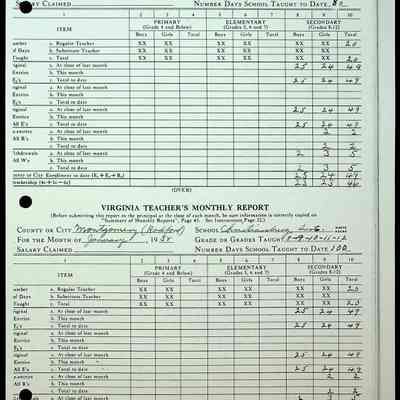 SALARY CLAIMED NUMBER DAYS SCHOOL TAUGHT TO DATE, 80
1 2 3 4 5 6 7 8 9 10
ITEM PRIMARY (Grade 4 and Below) ELEMENTARY (Grades 5, 6 and 7) SECONDARY (Grades 8-12)
Boys Girls Total Boys Girls Total Boys Girls Total
umber a. Regular Teacher XX XX XX XX XX XX 20
f Days b. Substitute Teacher XX XX XX XX XX XX
Taught c. Total XX XX XX XX XX XX 20
riginal a. At close of last month 25 24 49
Entries b. This month
E₁'s c. Total to date 25 24 49
riginal a. At close of last month
Entries b. This month
c. Total to date
a. At close of last month 25 24 49
Entries b. This month
All E's c. Total to date 25 24 49
a. At close of last month 2 2
All R's b. This month
c. Total to date 2 2
thdrawals a. At close of last month 2 3 5
All W's b. This month
c. Total to date 2 3 5
25 24 49
23 23 46
(OVER)
VIRGINIA TEACHER'S MONTHLY REPORT
(Before submitting this report to the principal at the close of each month, be sure information is correctly copied on
"Summary of Monthly Reports", Page 45. See Instructions Page 32.)
COUNTY OR CITY Montgomery (Radford) SCHOOL Christiansburg Inst.
FOR THE MONTH OF January, 195 GRADE OR GRADES TAUGHT 8-9-10-11-12
SALARY CLAIMED NUMBER DAYS SCHOOL TAUGHT TO DATE, 100
1 2 3 4 5 6 7 8 9 10
ITEM PRIMARY (Grade 4 and Below) ELEMENTARY (Grades 5, 6 and 7) SECONDARY (Grades 8-12)
Boys Girls Total Boys Girls Total Boys Girls Total
umber a. Regular Teacher XX XX XX XX XX XX 20
of Days b. Substitute Teacher XX XX XX XX XX XX
Taught c. Total XX XX XX XX XX XX 20
riginal a. At close of last month 25 24 49
Entries b. This month
E₁'s c. Total to date 25 24 49
riginal a. At close of last month
Entries b. This month
c. Total to date
a. At close of last month 25 24 49
Entries b. This month
All E's c. Total to date 25 24 49
a. At close of last month 2 2
All R's b. This month
c. Total to date 2 2
a. At close of last month 2 3 5